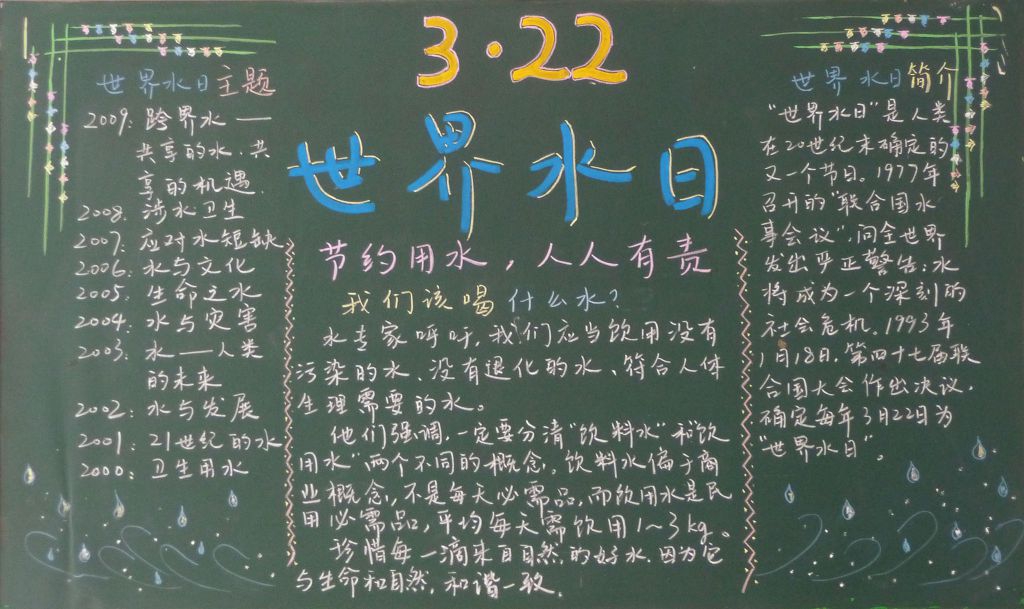 3·22
世界水日
世界水日主题
2009：跨界水——
共享的水、共
享的机遇
2008：涉水卫生
2007：应对水短缺
2006：水与文化
2005：生命之水
2004：水与灾害
2003：水——人类
的未来
2002：水与发展
2001：21世纪的水
2000：卫生用水
节约用水，人人有责
我们该喝什么水？
水专家呼吁，我们应当饮用没有
污染的水、没有退化的水、符合人体
生理需要的水。
他们强调，一定要分清“饮料水”和“饮
用水”两个不同的概念，饮料水偏于商
业概念，不是每天必需品，而饮用水是民
用必需品，平均每天需饮用1～3kg。
珍惜每一滴来自自然的好水，因为它
与生命和自然，和谐一致.
世界水日简介
“世界水日”是人类
在20世纪末确定的
又一个节日。1977年
召开的“联合国水
事会议”，向全世界
发出严正警告：水
将成为一个深刻的
社会危机。1993年
1月18日，第四十七届联
合国大会作出决议，
确定每年3月22日为
“世界水日”。